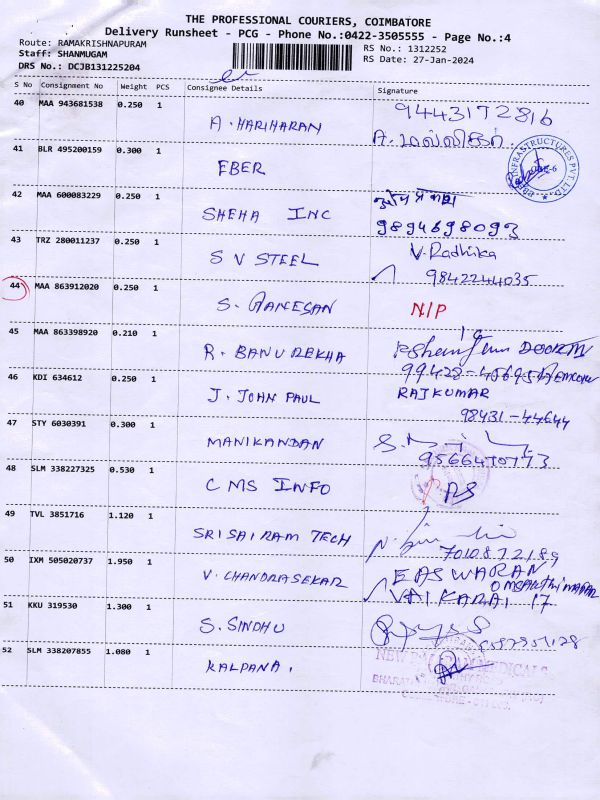 THE PROFESSIONAL COURIERS, COIMBATORE
Delivery Runsheet - PCG - Phone No.:0422-3505555 - Page No.:4
Route: RAMAKRISHNAPURAM
RS No.: 1312252
Staff: SHANMUGAM
RS Date: 27-Jan-2024
DRS No.: DCJB131225204
S No Consignment No Weight PCS Consignee Details Signature
40 MAA 943681538 0.250 1
A. HARIHARAN
9443172816
A. மல்லிகா.
41 BLR 495200159 0.300 1
EBER
INFRASTRUCTURES PVT. LTD.
42 MAA 600083229 0.250 1
SHEHA INC
9894698093
43 TRZ 280011237 0.250 1
S V STEEL
V. Radhika
9842244035
44 MAA 863912020 0.250 1
S. GANESAN
N/P
45 MAA 863398920 0.210 1
R. BANU REKHA
46 KDI 634612 0.250 1
J. JOHN PAUL
RAJKUMAR
98431-44644
47 STY 6030391 0.300 1
MANIKANDAN
9566470773
48 SLM 338227325 0.530 1
CMS INFO
49 TVL 3851716 1.120 1
SRI SAI RAM TECH
7010872189
50 IXM 505020737 1.950 1
V. CHANDRASEKAR
EASWARAN
VAIKARAI 17
51 KKU 319530 1.300 1
S. SINDHU
52 SLM 338207855 1.080 1
KALPANA.